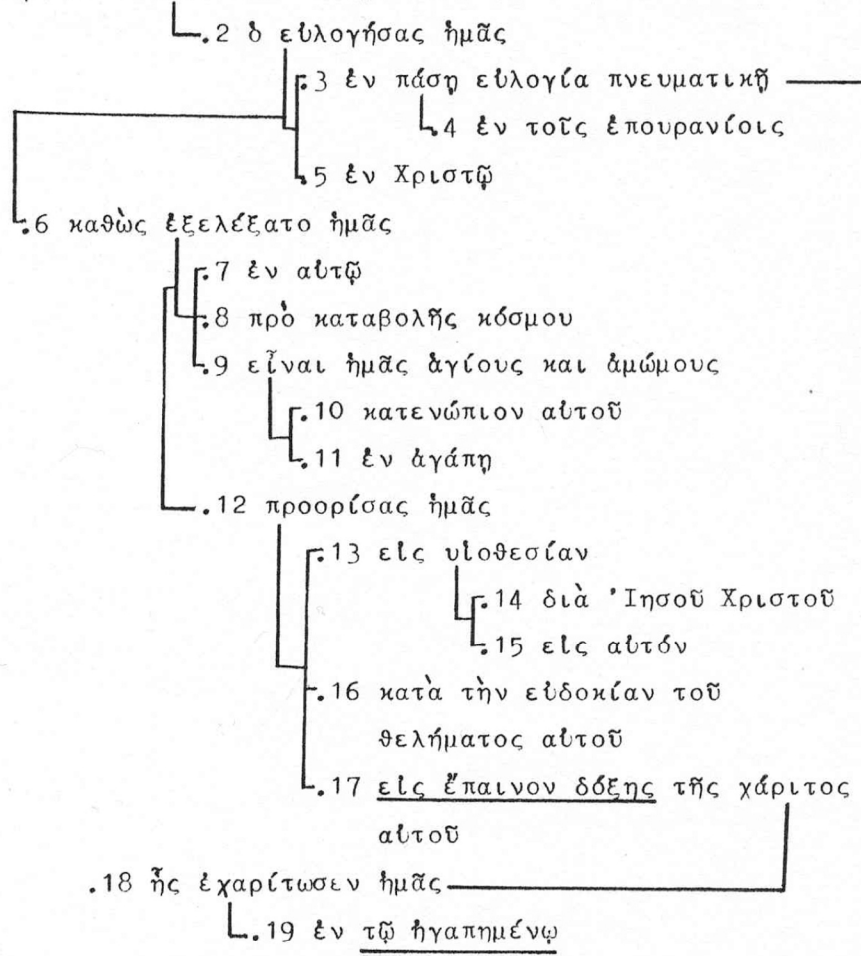 .2 ὁ εὐλογήσας ἡμᾶς
.3 ἐν πάσῃ εὐλογίᾳ πνευματικῇ
.4 ἐν τοῖς ἐπουρανίοις
.5 ἐν Χριστῷ
.6 καθὼς ἐξελέξατο ἡμᾶς
.7 ἐν αὐτῷ
.8 πρὸ καταβολῆς κόσμου
.9 εἶναι ἡμᾶς ἁγίους και ἀμώμους
.10 κατενώπιον αὐτοῦ
.11 ἐν ἀγάπῃ
.12 προορίσας ἡμᾶς
.13 εἰς υἱοθεσίαν
.14 διὰ Ἰησοῦ Χριστοῦ
.15 εἰς αὐτόν
.16 κατὰ τὴν εὐδοκίαν τοῦ
θελήματος αὐτοῦ
.17 εἰς ἔπαινον δόξης τῆς χάριτος
αὐτοῦ
.18 ἧς ἐχαρίτωσεν ἡμᾶς
.19 ἐν τῷ ἠγαπημένῳ